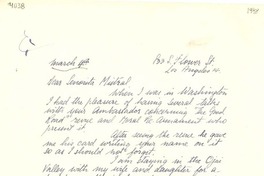 March 4th
Los Angeles
Dear Senorita Mistral
When I was in Washington
I had the pleasure of having several talks
with your Ambassador concerning "The Good
Road" revue and Moral Re Armament who
present it.
After seeing the revue he gave
me his card writing your name on it
so as I should not forget.
I am staying in the Ojai
Valley with my wife and daughter for a